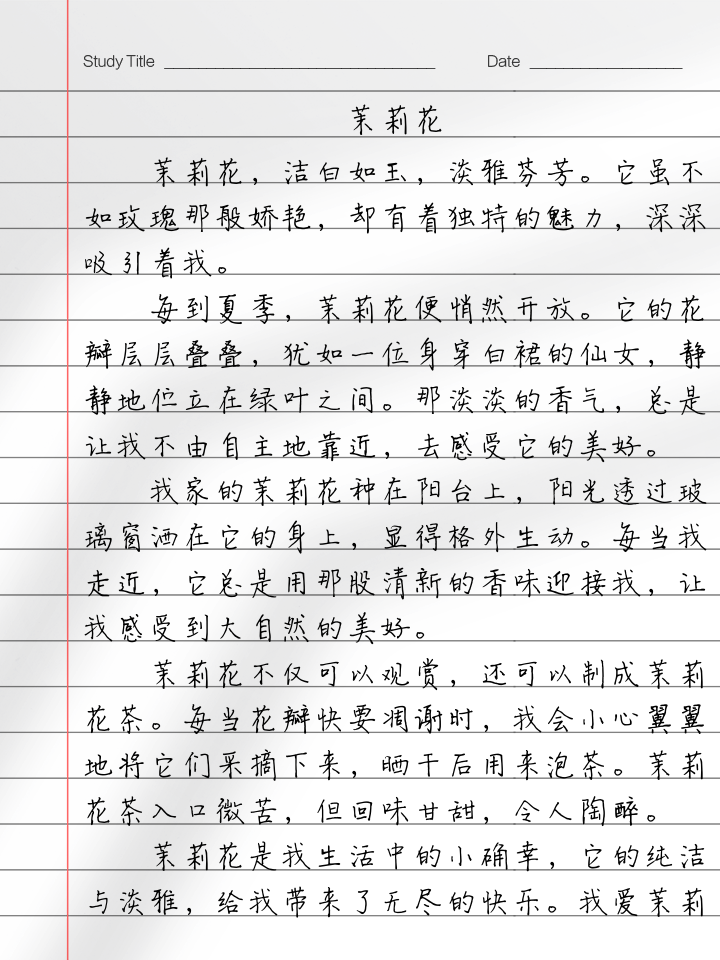 Study Title Date
茉莉花
茉莉花，洁白如玉，淡雅芬芳。它虽不
如玫瑰那般娇艳，却有着独特的魅力，深深
吸引着我。
每到夏季，茉莉花便悄然开放。它的花
瓣层层叠叠，犹如一位身穿白裙的仙女，静
静地伫立在绿叶之间。那淡淡的香气，总是
让我不由自主地靠近，去感受它的美好。
我家的茉莉花种在阳台上，阳光透过玻
璃窗洒在它的身上，显得格外生动。每当我
走近，它总是用那股清新的香味迎接我，让
我感受到大自然的美好。
茉莉花不仅可以观赏，还可以制成茉莉
花茶。每当花瓣快要凋谢时，我会小心翼翼
地将它们采摘下来，晒干后用来泡茶。茉莉
花茶入口微苦，但回味甘甜，令人陶醉。
茉莉花是我生活中的小确幸，它的纯洁
与淡雅，给我带来了无尽的快乐。我爱茉莉